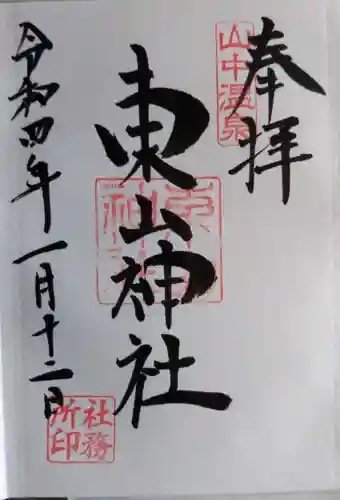 奉拝
山中温泉
東山神社
東山神社
令和四年一月十二日
社務所印